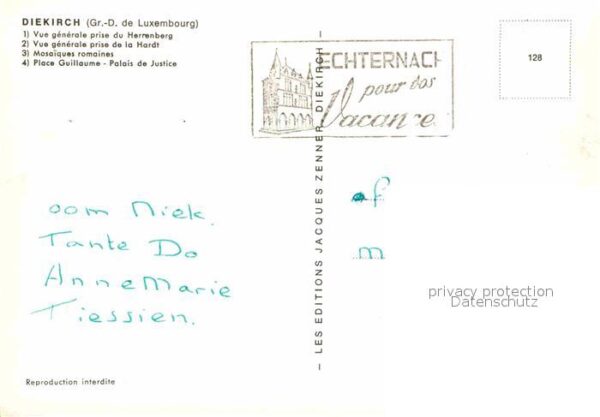 DIEKIRCH (Gr.-D. de Luxembourg)
1) Vue générale prise du Herrenberg
2) Vue générale prise de la Hardt
3) Mosaïques romaines
4) Place Guillaume - Palais de Justice
ECHTERNACH
pour vos
Vacances
128
— LES EDITIONS JACQUES ZENNER, DIEKIRCH —
oom Niek.
Tante Do
AnneMarie
Tiessien.
af
m
privacy protection
Datenschutz
Reproduction interdite